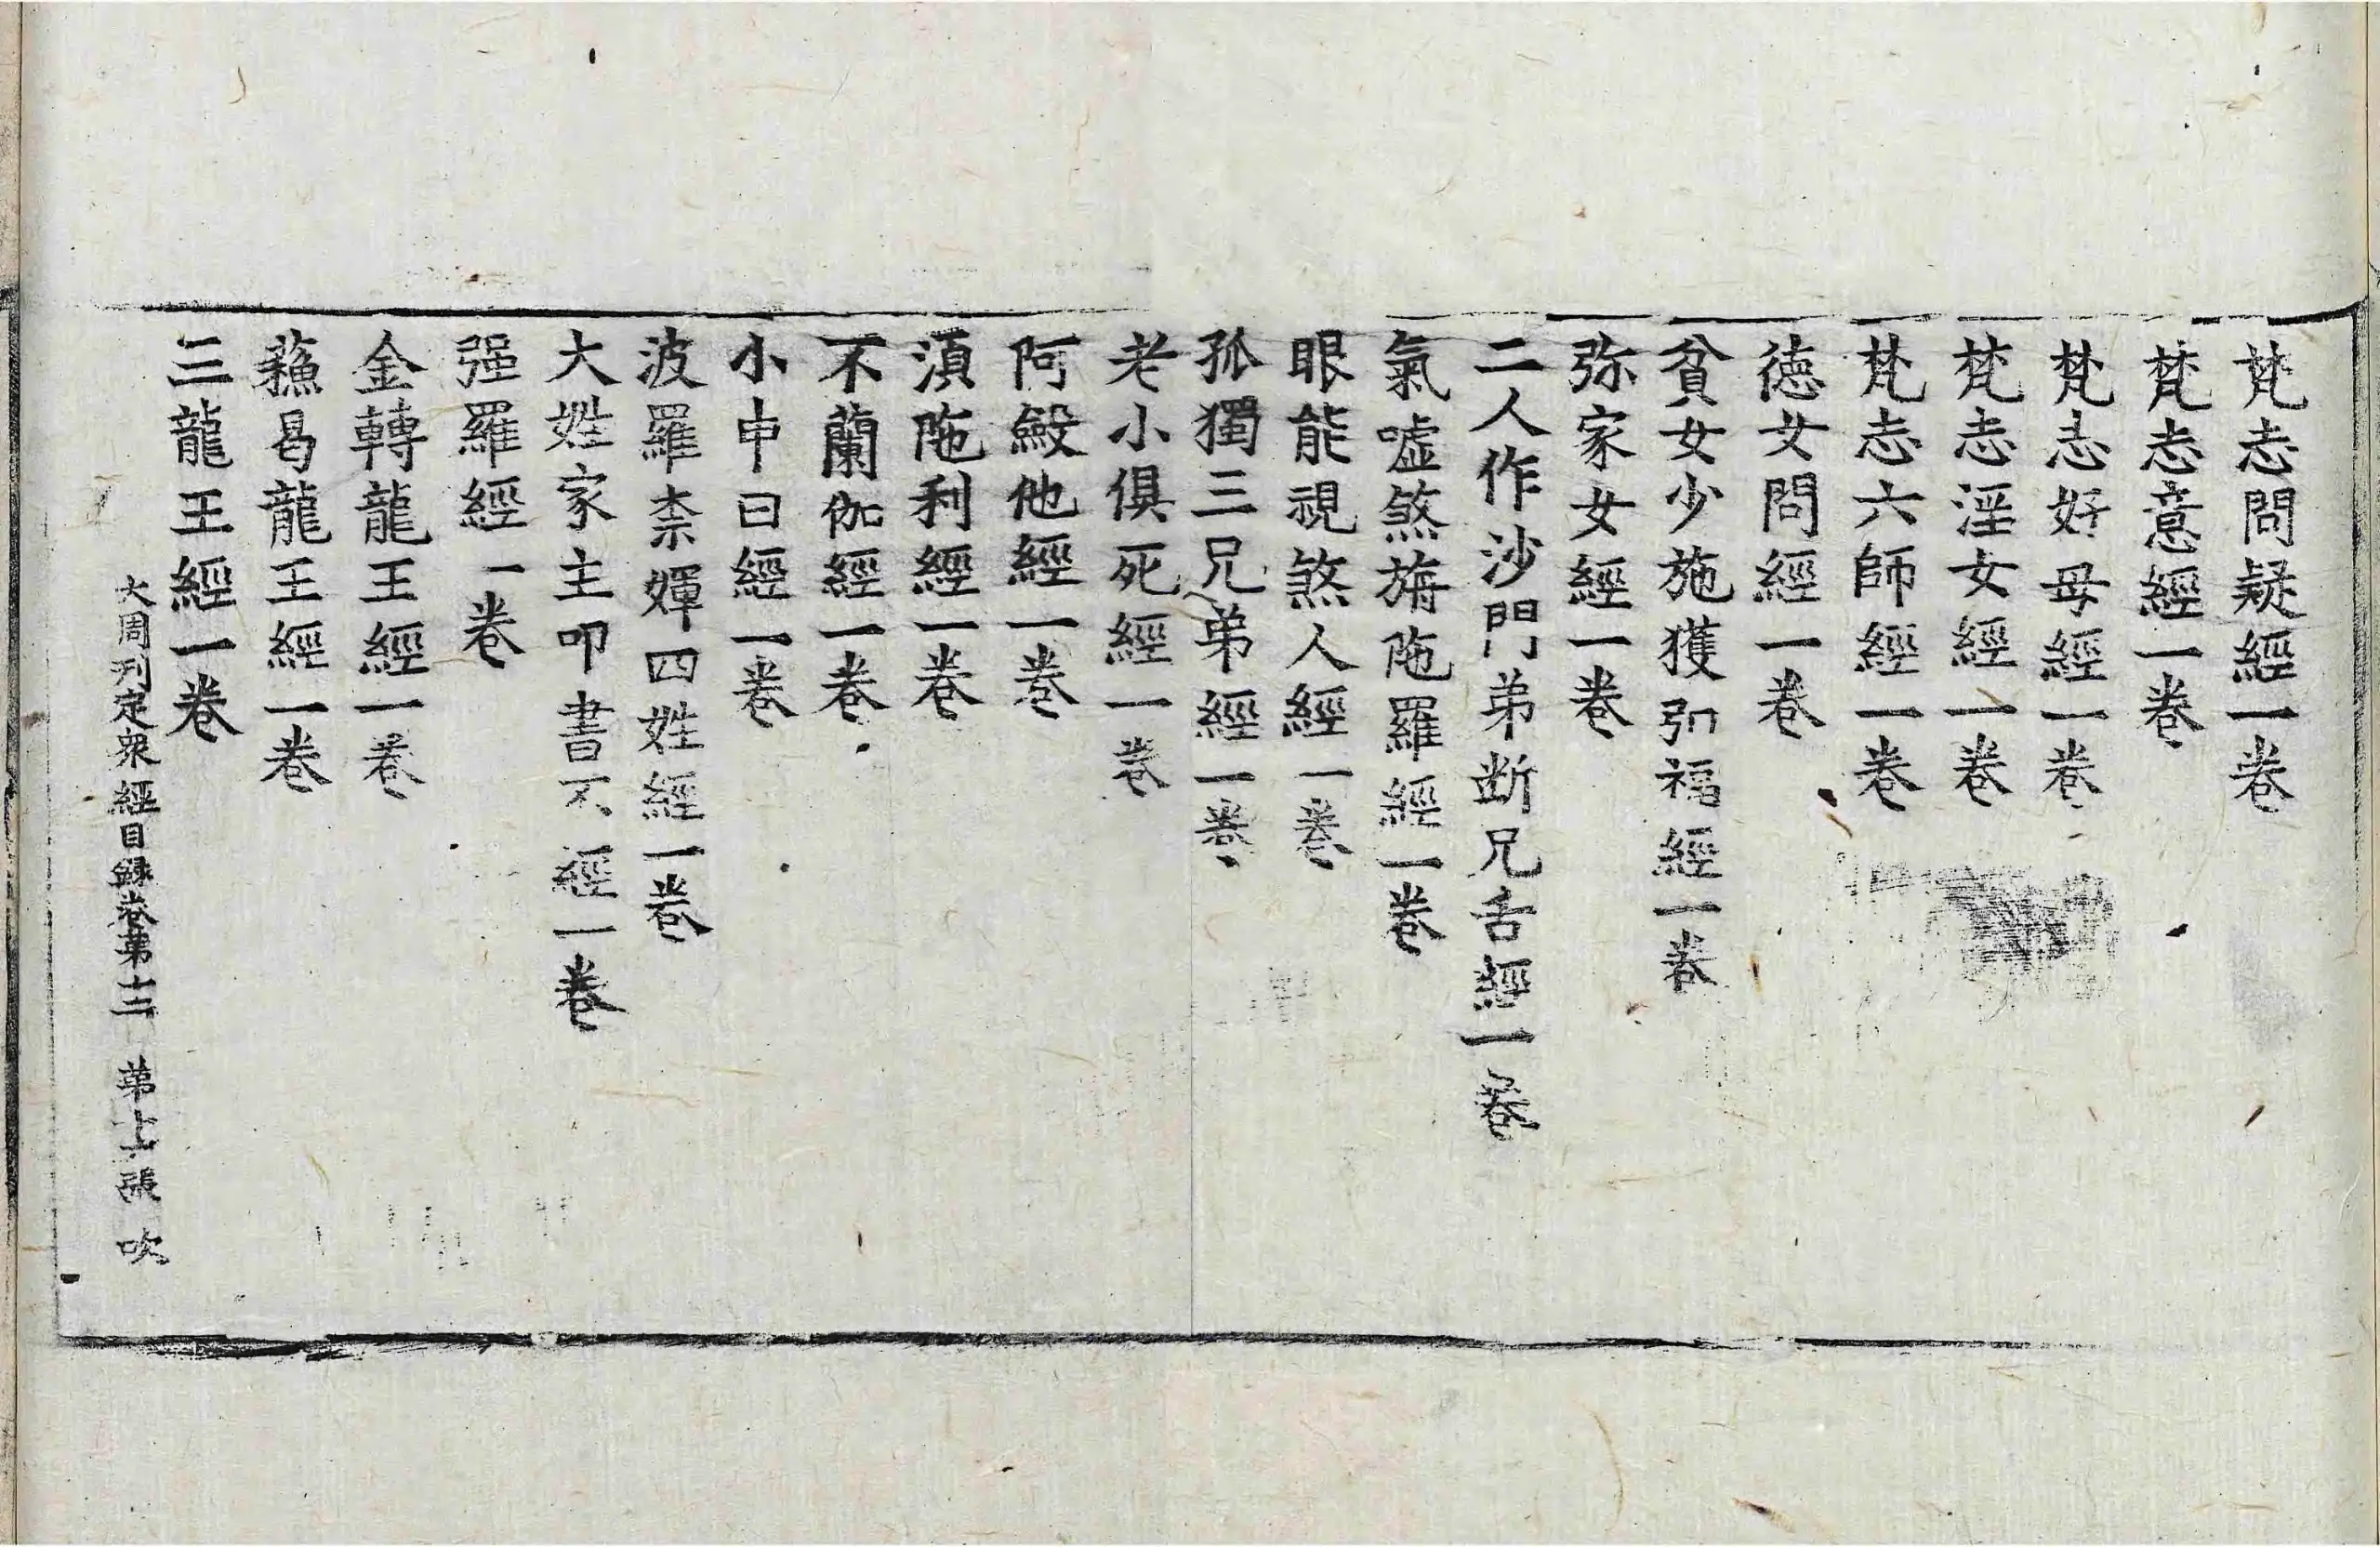 梵志問疑經一卷
梵志意經一卷
梵志好母經一卷
梵志淫女經一卷
梵志六師經一卷
德女問經一卷
貧女少施獲弘福經一卷
弥家女經一卷
二人作沙門弟断兄舌經一卷
氣噓煞旃陁羅經一卷
眼能視煞人經一卷
孤獨三兄弟經一卷
老小俱死經一卷
阿㲉他經一卷
湏陁利經一卷
不蘭伽經一卷
小申曰經一卷
波羅柰媈四姓經一卷
大姓家主叩書不經一卷
强羅經一卷
金轉龍王經一卷
蘓曷龍王經一卷
三龍王經一卷
大周刋定衆經目録卷第十二 第 張 吹